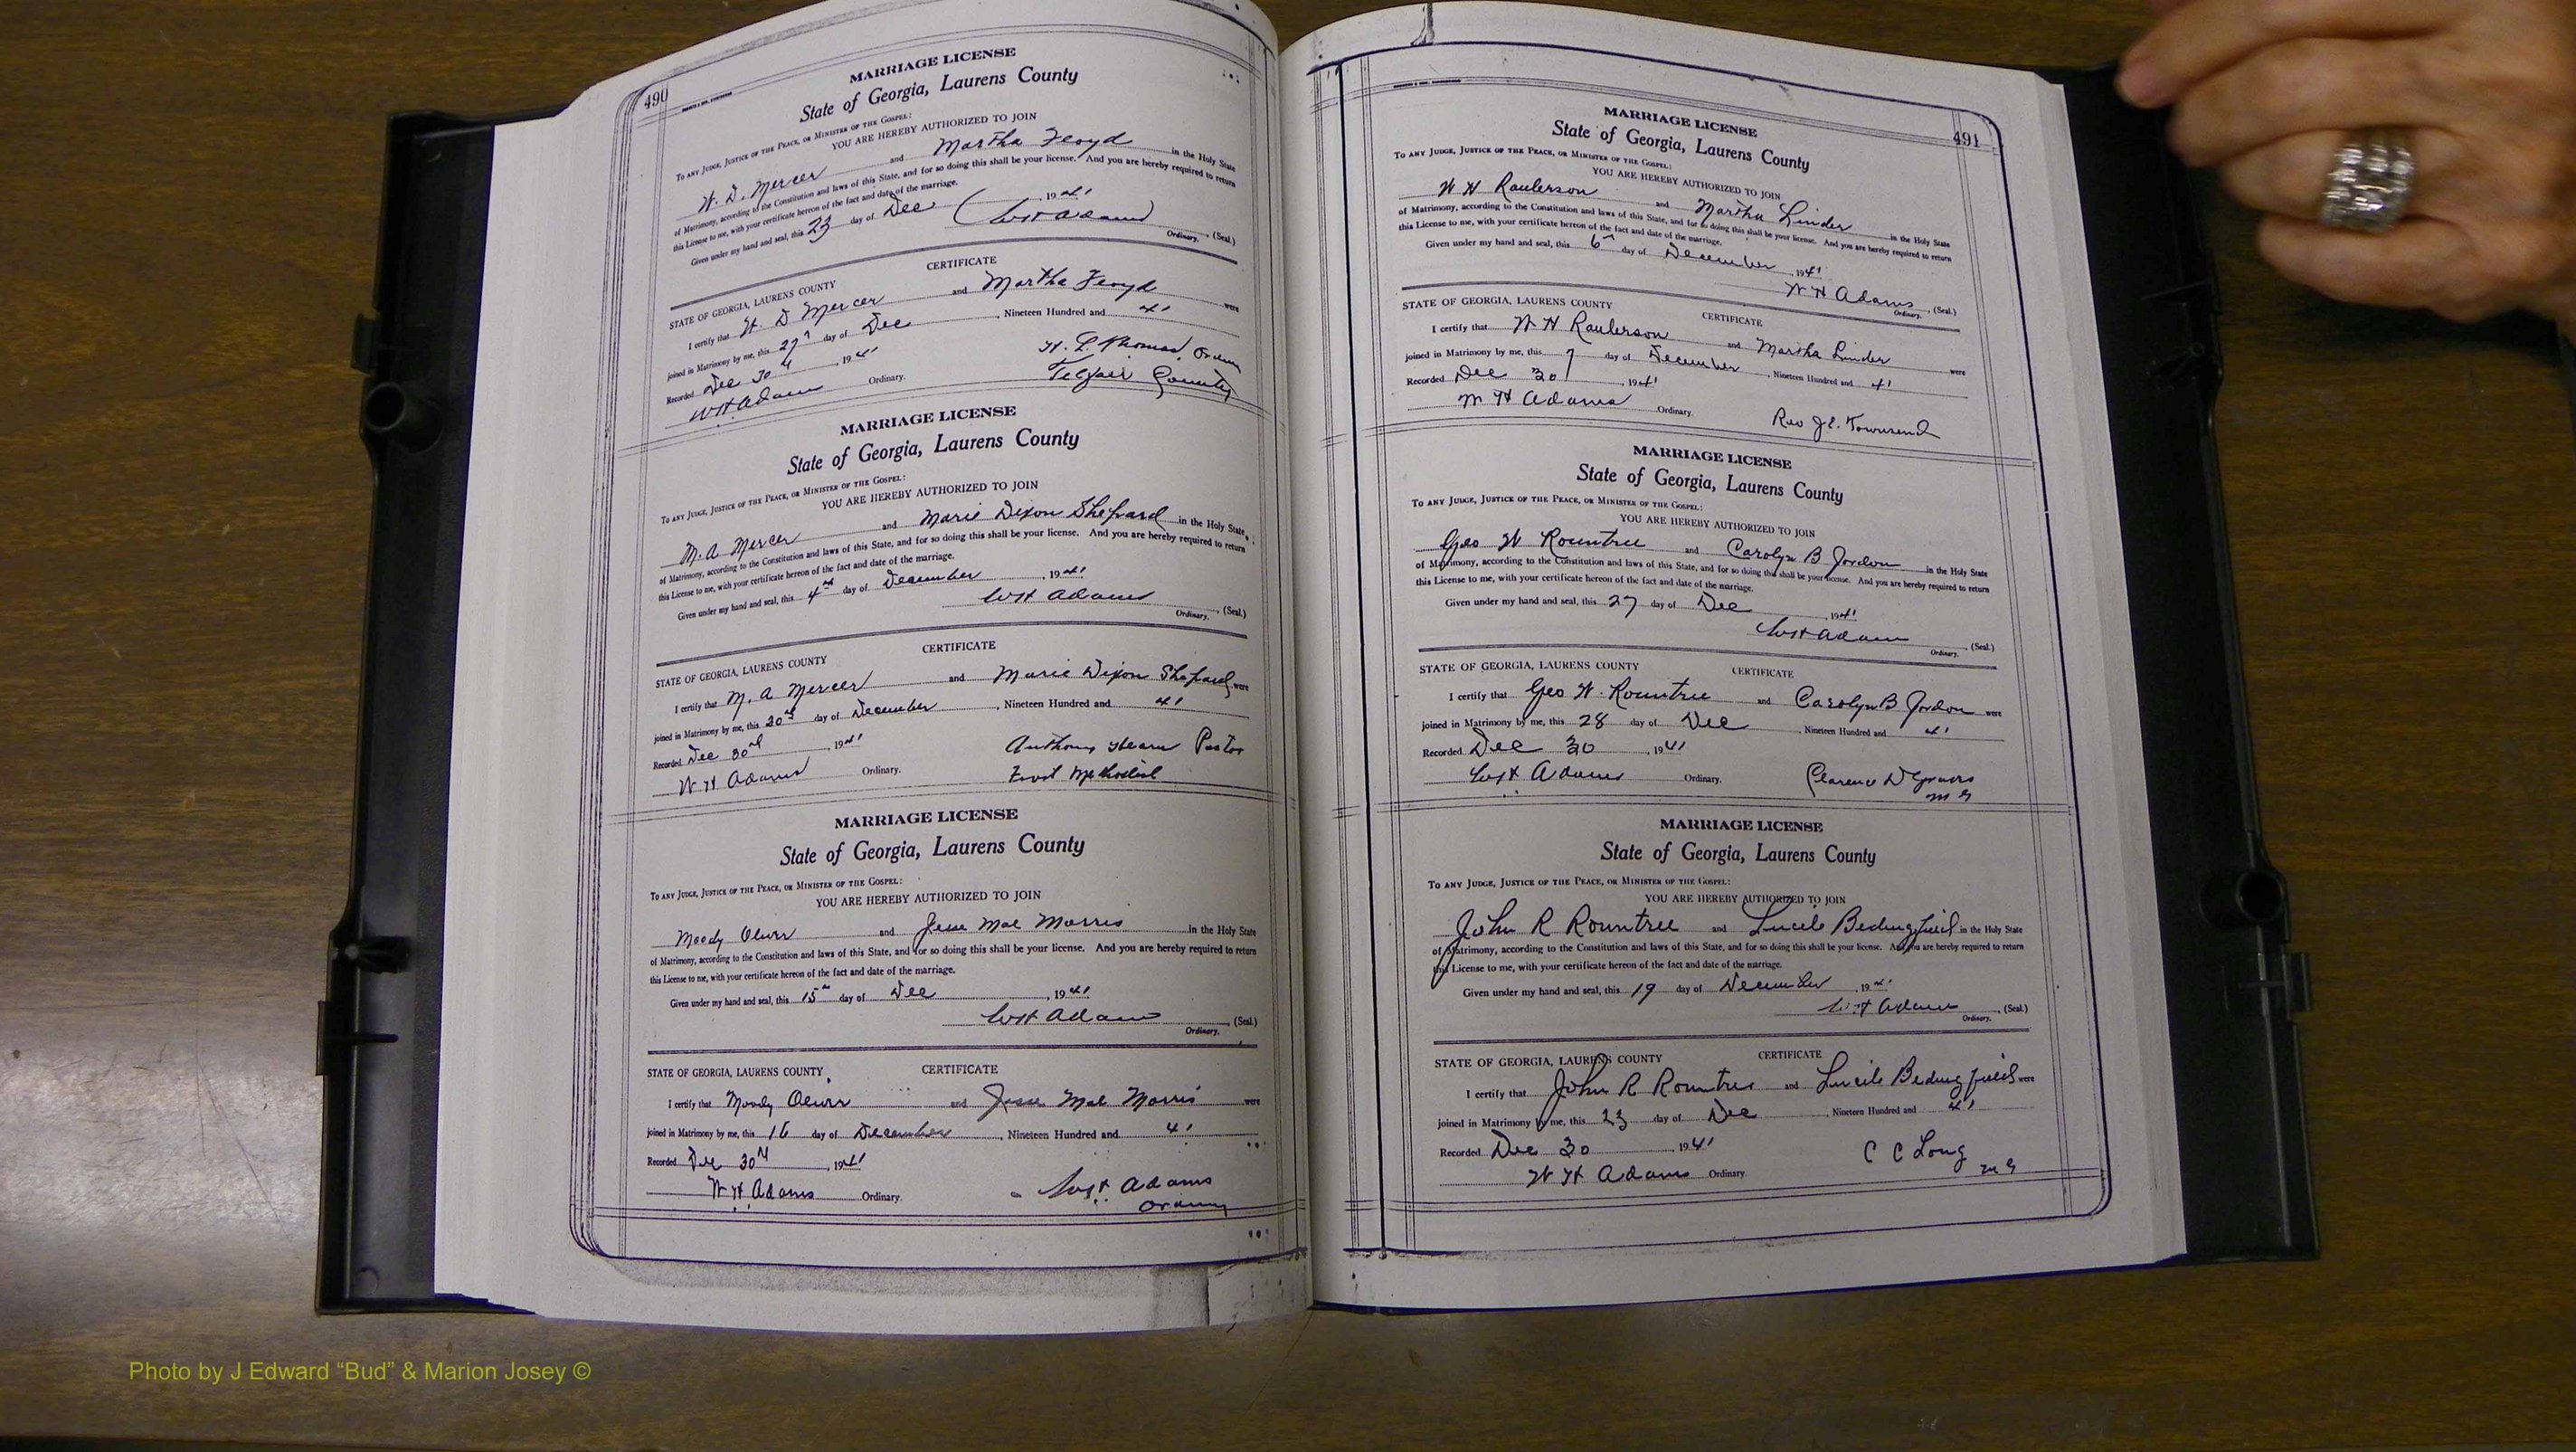 490
MARRIAGE LICENSE
State of Georgia, Laurens County
To ANY JUDGE, JUSTICE OF THE PEACE, OR MINISTER OF THE GOSPEL:
YOU ARE HEREBY AUTHORIZED TO JOIN
W. D. Mercer and Martha Floyd in the Holy State
of Matrimony, according to the Constitution and laws of this State, and for so doing this shall be your license. And you are hereby required to return
this License to me, with your certificate hereon of the fact and date of the marriage.
Given under my hand and seal, this 23 day of Dec, 1941
WH Adams (Seal.)
Ordinary.
CERTIFICATE
STATE OF GEORGIA, LAURENS COUNTY
I certify that W. D Mercer and Martha Floyd were
joined in Matrimony by me, this 27" day of Dec, Nineteen Hundred and 41
Recorded Dec 30, 1941
WH Adams Ordinary.
Thomas, Ordinary
Telfair County
MARRIAGE LICENSE
State of Georgia, Laurens County
To ANY JUDGE, JUSTICE OF THE PEACE, OR MINISTER OF THE GOSPEL:
YOU ARE HEREBY AUTHORIZED TO JOIN
M. A Mercer and Marie Dixon Shepard in the Holy State
of Matrimony, according to the Constitution and laws of this State, and for so doing this shall be your license. And you are hereby required to return
this License to me, with your certificate hereon of the fact and date of the marriage.
Given under my hand and seal, this 4th day of December, 1941
WH Adams (Seal.)
Ordinary.
CERTIFICATE
STATE OF GEORGIA, LAURENS COUNTY
I certify that M. A Mercer and Marie Dixon Shepard were
joined in Matrimony by me, this day of December, Nineteen Hundred and 41
Recorded Dec 30, 1941
W H Adams Ordinary.
Anthony Hearn Pastor
First Methodist
MARRIAGE LICENSE
State of Georgia, Laurens County
To ANY JUDGE, JUSTICE OF THE PEACE, OR MINISTER OF THE GOSPEL:
YOU ARE HEREBY AUTHORIZED TO JOIN
Moody and Jesse Mae Morris in the Holy State
of Matrimony, according to the Constitution and laws of this State, and for so doing this shall be your license. And you are hereby required to return
this License to me, with your certificate hereon of the fact and date of the marriage.
Given under my hand and seal, this 15th day of Dec, 1941
WH Adams (Seal.)
Ordinary.
STATE OF GEORGIA, LAURENS COUNTY CERTIFICATE
I certify that Moody and Jesse Mae Morris were
joined in Matrimony by me, this 16 day of December, Nineteen Hundred and 41
Recorded Dec 30th, 1941
W H Adams Ordinary.
WH Adams
Ordinary
491
MARRIAGE LICENSE
State of Georgia, Laurens County
To ANY JUDGE, JUSTICE OF THE PEACE, OR MINISTER OF THE GOSPEL:
YOU ARE HEREBY AUTHORIZED TO JOIN
W H Raulerson and Martha Linder in the Holy State
of Matrimony, according to the Constitution and laws of this State, and for so doing this shall be your license. And you are hereby required to return
this License to me, with your certificate hereon of the fact and date of the marriage.
Given under my hand and seal, this 6 day of December, 1941
W H Adams (Seal.)
Ordinary.
STATE OF GEORGIA, LAURENS COUNTY CERTIFICATE
I certify that W H Raulerson and Martha Linder were
joined in Matrimony by me, this 7 day of December, Nineteen Hundred and 41
Recorded Dec 30, 1941
W H Adams Ordinary.
Rev J. E. Townsend
MARRIAGE LICENSE
State of Georgia, Laurens County
To ANY JUDGE, JUSTICE OF THE PEACE, OR MINISTER OF THE GOSPEL:
YOU ARE HEREBY AUTHORIZED TO JOIN
Geo W Rountree and Carolyn B Jordon in the Holy State
of Matrimony, according to the Constitution and laws of this State, and for so doing this shall be your license. And you are hereby required to return
this License to me, with your certificate hereon of the fact and date of the marriage.
Given under my hand and seal, this 27 day of Dec, 1941
WH Adams (Seal.)
Ordinary.
STATE OF GEORGIA, LAURENS COUNTY CERTIFICATE
I certify that Geo W. Rountree and Carolyn B Jordon were
joined in Matrimony by me, this 28 day of Dec, Nineteen Hundred and 41
Recorded Dec 30, 1941
WH Adams Ordinary.
Clarence
M G
MARRIAGE LICENSE
State of Georgia, Laurens County
To ANY JUDGE, JUSTICE OF THE PEACE, OR MINISTER OF THE GOSPEL:
YOU ARE HEREBY AUTHORIZED TO JOIN
John R Rountree and Lucile Bedingfield in the Holy State
of Matrimony, according to the Constitution and laws of this State, and for so doing this shall be your license. And you are hereby required to return
this License to me, with your certificate hereon of the fact and date of the marriage.
Given under my hand and seal, this 19 day of December, 1941
WH Adams (Seal.)
Ordinary.
STATE OF GEORGIA, LAURENS COUNTY CERTIFICATE
I certify that John R Rountree and Lucile Bedingfield were
joined in Matrimony by me, this 23 day of Dec, Nineteen Hundred and 41
Recorded Dec 30, 1941
W H Adams Ordinary.
C C Long
M G
Photo by J Edward “Bud” & Marion Josey ©